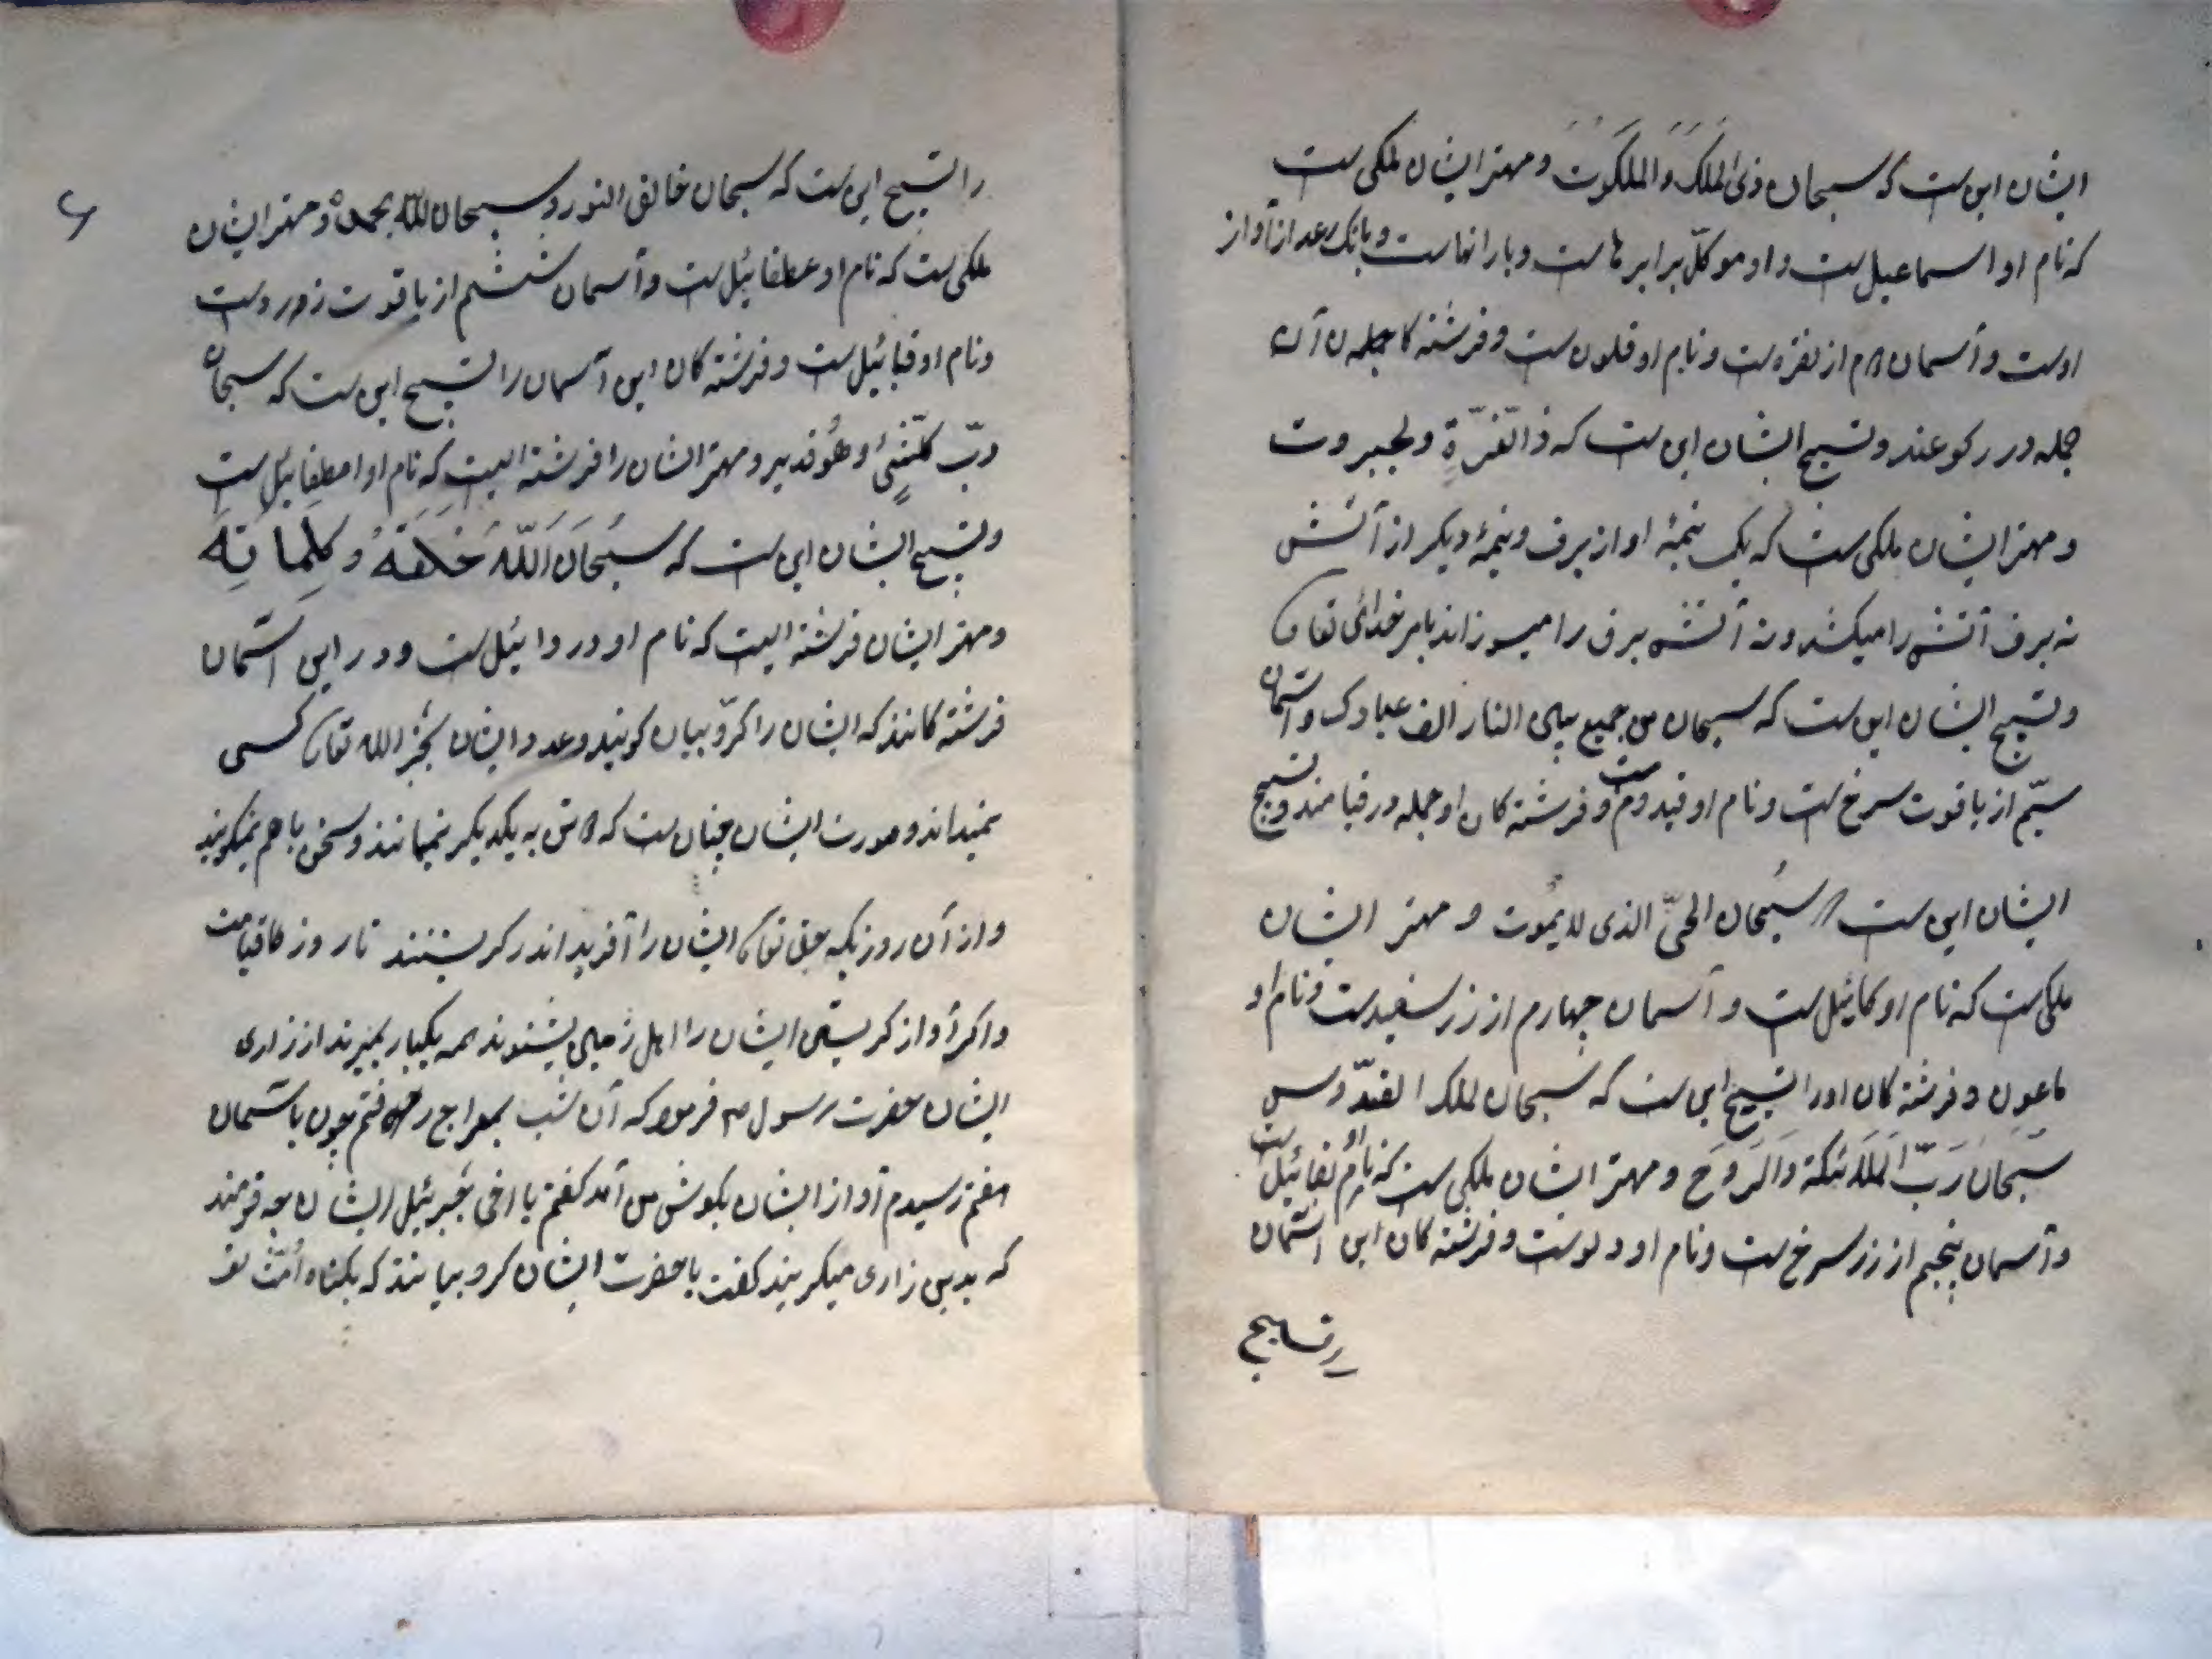 ایشان این ست که سبحان ذی الملک والملکوت ومهتر ایشان ملکی ست
که نام او اسماعیل ست و او موکل برابرها ست و بارانها ست و بانک رعد از آواز
اوست و آسمان دوم از نقره ست و نام او قلون ست و فرشته کا جمله ن آن
جمله در رکوعند و تسبیح ایشان این ست که ذالعزة ولجبروت
ومهتر ایشان ملکی ست که یک نیمهٔ او از برف و نیمهٔ دیکر از آتش
نه برف آتش را میکشد و نه آتش برف را میسوزاند بامر خدائی تعالی
وتسبیح ایشان این ست که سبحان من جمیع بین النار الف عبادک و آسمان
سیّم از یاقوت سرخ ست ونام او قیدوم ست و فرشته کان او جمله در قیامند و تسبیح
ایشان این ست که سبحان الحیّ الذی لایموت و مهتر ایشان
ملکی ست که نام او کمائیل ست و آسمان چهارم از زر سفید ست و نام او
ماعون و فرشته کان او را تسبیح این ست که سبحان لملک القدّوس
سبحان ربّ الملائکة والروح ومهتر ایشان ملکی ست که نام او نفائیل ست
و آسمان پنجم از زر سرخ ست ونام او دلوست و فرشته کان این آسمان
را تسبیح
۶
را تسبیح این ست که سبحان خالق النور و سبحان الله بحمده ومهتر ایشان
ملکی ست که نام او عطفائیل ست و آسمان ششم از یاقوت زرد ست
ونام او قبائیل ست و فرشته کان این آسمان را تسبیح این ست که سبحان
ربّ کلّشئ وهو قدیر ومهتر ایشان را فرشته ایست که نام او امطفائیل ست
وتسبیح ایشان این ست که سبحان الله خلقه وکلماته
ومهتر ایشان فرشته ایست که نام او دردائیل ست و در این آسمان
فرشته کانند که ایشان را کرّوبیان کویند وعدد ایشان بجز الله تعالی کسی
نمیداند وصورت ایشان چنان ست که هرش به یکدیکر نمیمانند وسخن باهم نمیکویند
و از آن روز یکه حق تعالی ایشان را آفرید اندر کریستنند تا روز قیامت
واکر آواز کریستن ایشان را اهل زمین بشنوند همه یکبار بمیرند از زاری
ایشان حضرت رسول ص فرمود که آن شب بمعراج رفتم چون باسمان
هفتم رسیدم آواز ایشان بکوش من آمد کفتم یا اخی جبرئیل ایشان چه قومند
که بدین زاری میکریند کفت یا حضرت ایشان کروبیانند که بکناه امّت تو